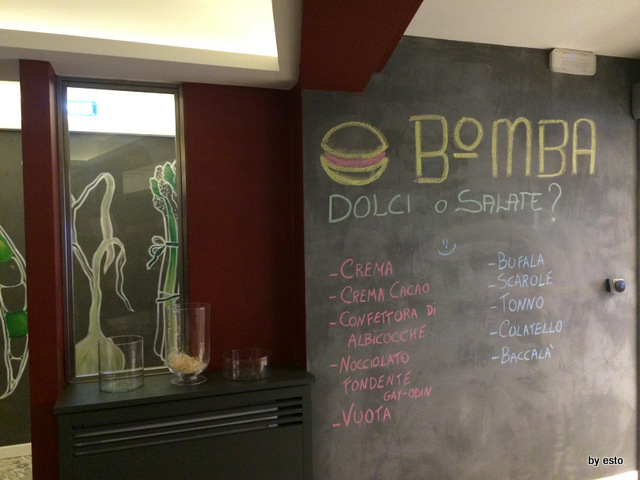 BOMBA
DOLCI o SALATE?
- CREMA
- CREMA CACAO
- CONFETTURA DI
ALBICOCCHE
- NOCCIOLATO
FONDENTE
GAY-ODIN
- VUOTA
- BUFALA
- SCAROLE
- TONNO
- CULATELLO
- BACCALA'
by esto